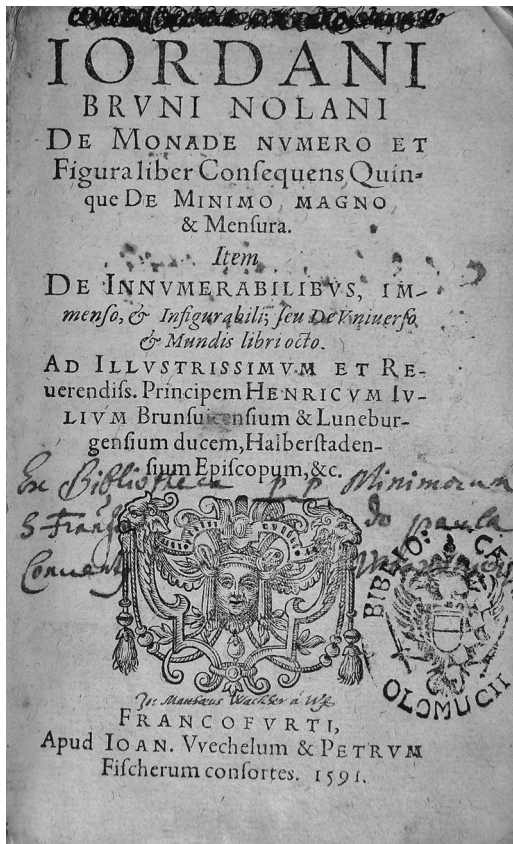 IORDANI
BRVNI NOLANI
DE MONADE NVMERO ET
Figura liber Conſequens Quin-
que DE MINIMO MAGNO
& Menſura.
Item
DE INNVMERABILIBVS, IM-
menſo, & Infigurabili; ſeu De Vniuerſo
& Mundis libri octo.
AD ILLVSTRISSIMVM ET RE-
uerendiſſ. Principem HENRICVM IV-
LIVM Brunſuicenſium & Lunebur-
genſium ducem, Halberſtaden-
ſium Epiſcopum, &c.
Ex Bibliotheca P P Minimorum
S Franç do paula
Convent
BIBLIO: CÆ
OLOMUCII
Jo: Matthæus Wackher à
FRANCOFVRTI,
Apud IOAN. VVechelum & PETRVM
Fiſcherum conſortes. 1591.